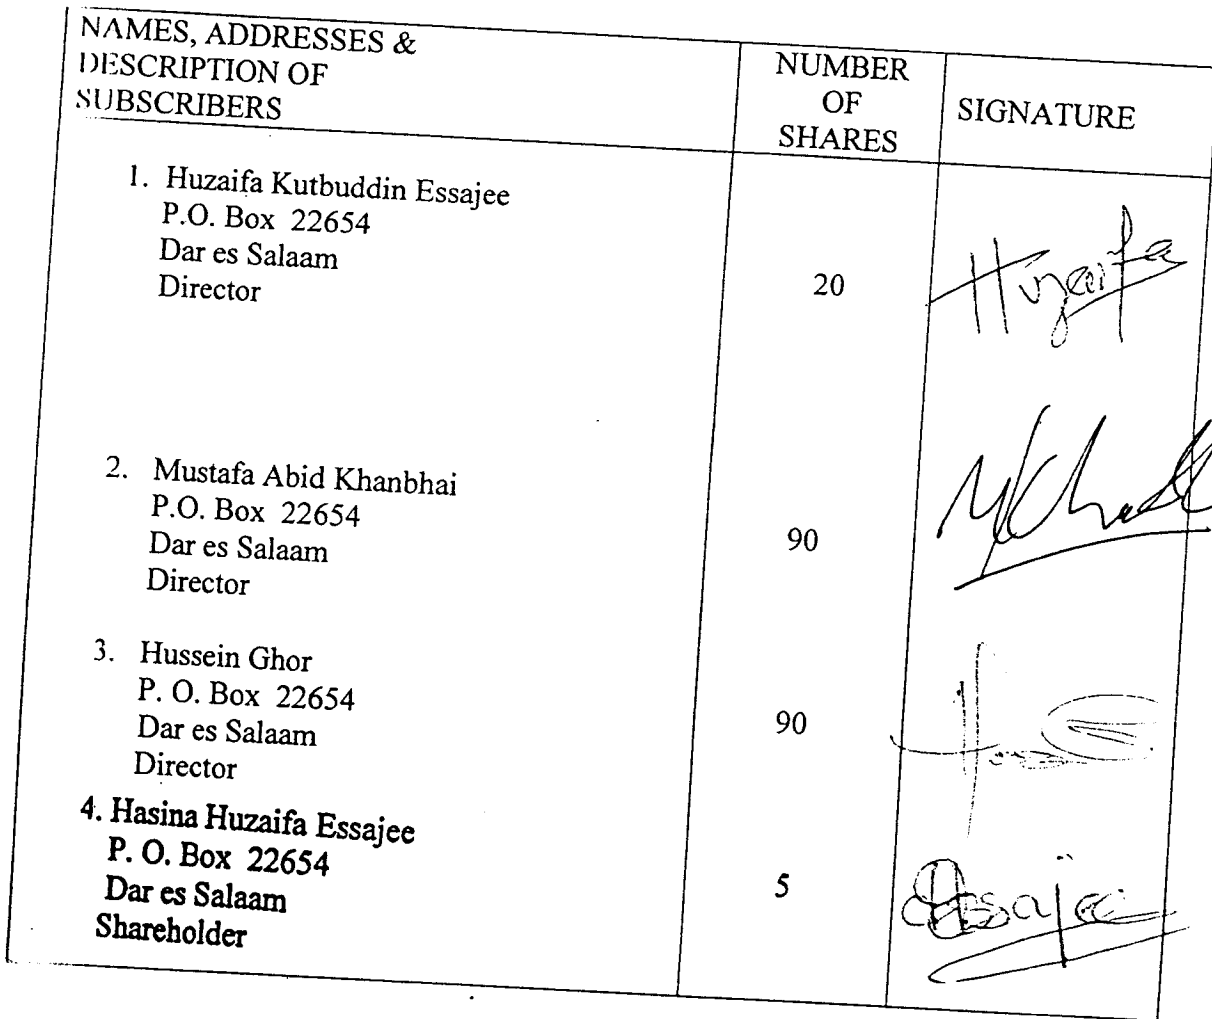 NAMES, ADDRESSES &
DESCRIPTION OF
SUBSCRIBERS
NUMBER
OF
SHARES
SIGNATURE
1. Huzaifa Kutbuddin Essajee
P.O. Box 22654
Dar es Salaam
Director
20
Huzaifa
2. Mustafa Abid Khanbhai
P.O. Box 22654
Dar es Salaam
Director
90
3. Hussein Ghor
P. O. Box 22654
Dar es Salaam
Director
90
4. Hasina Huzaifa Essajee
P. O. Box 22654
Dar es Salaam
Shareholder
5